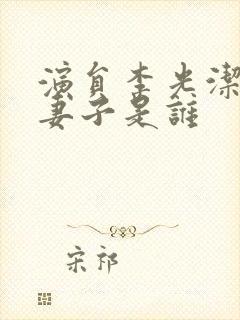 演員李光潔
妻子是誰
宋祁